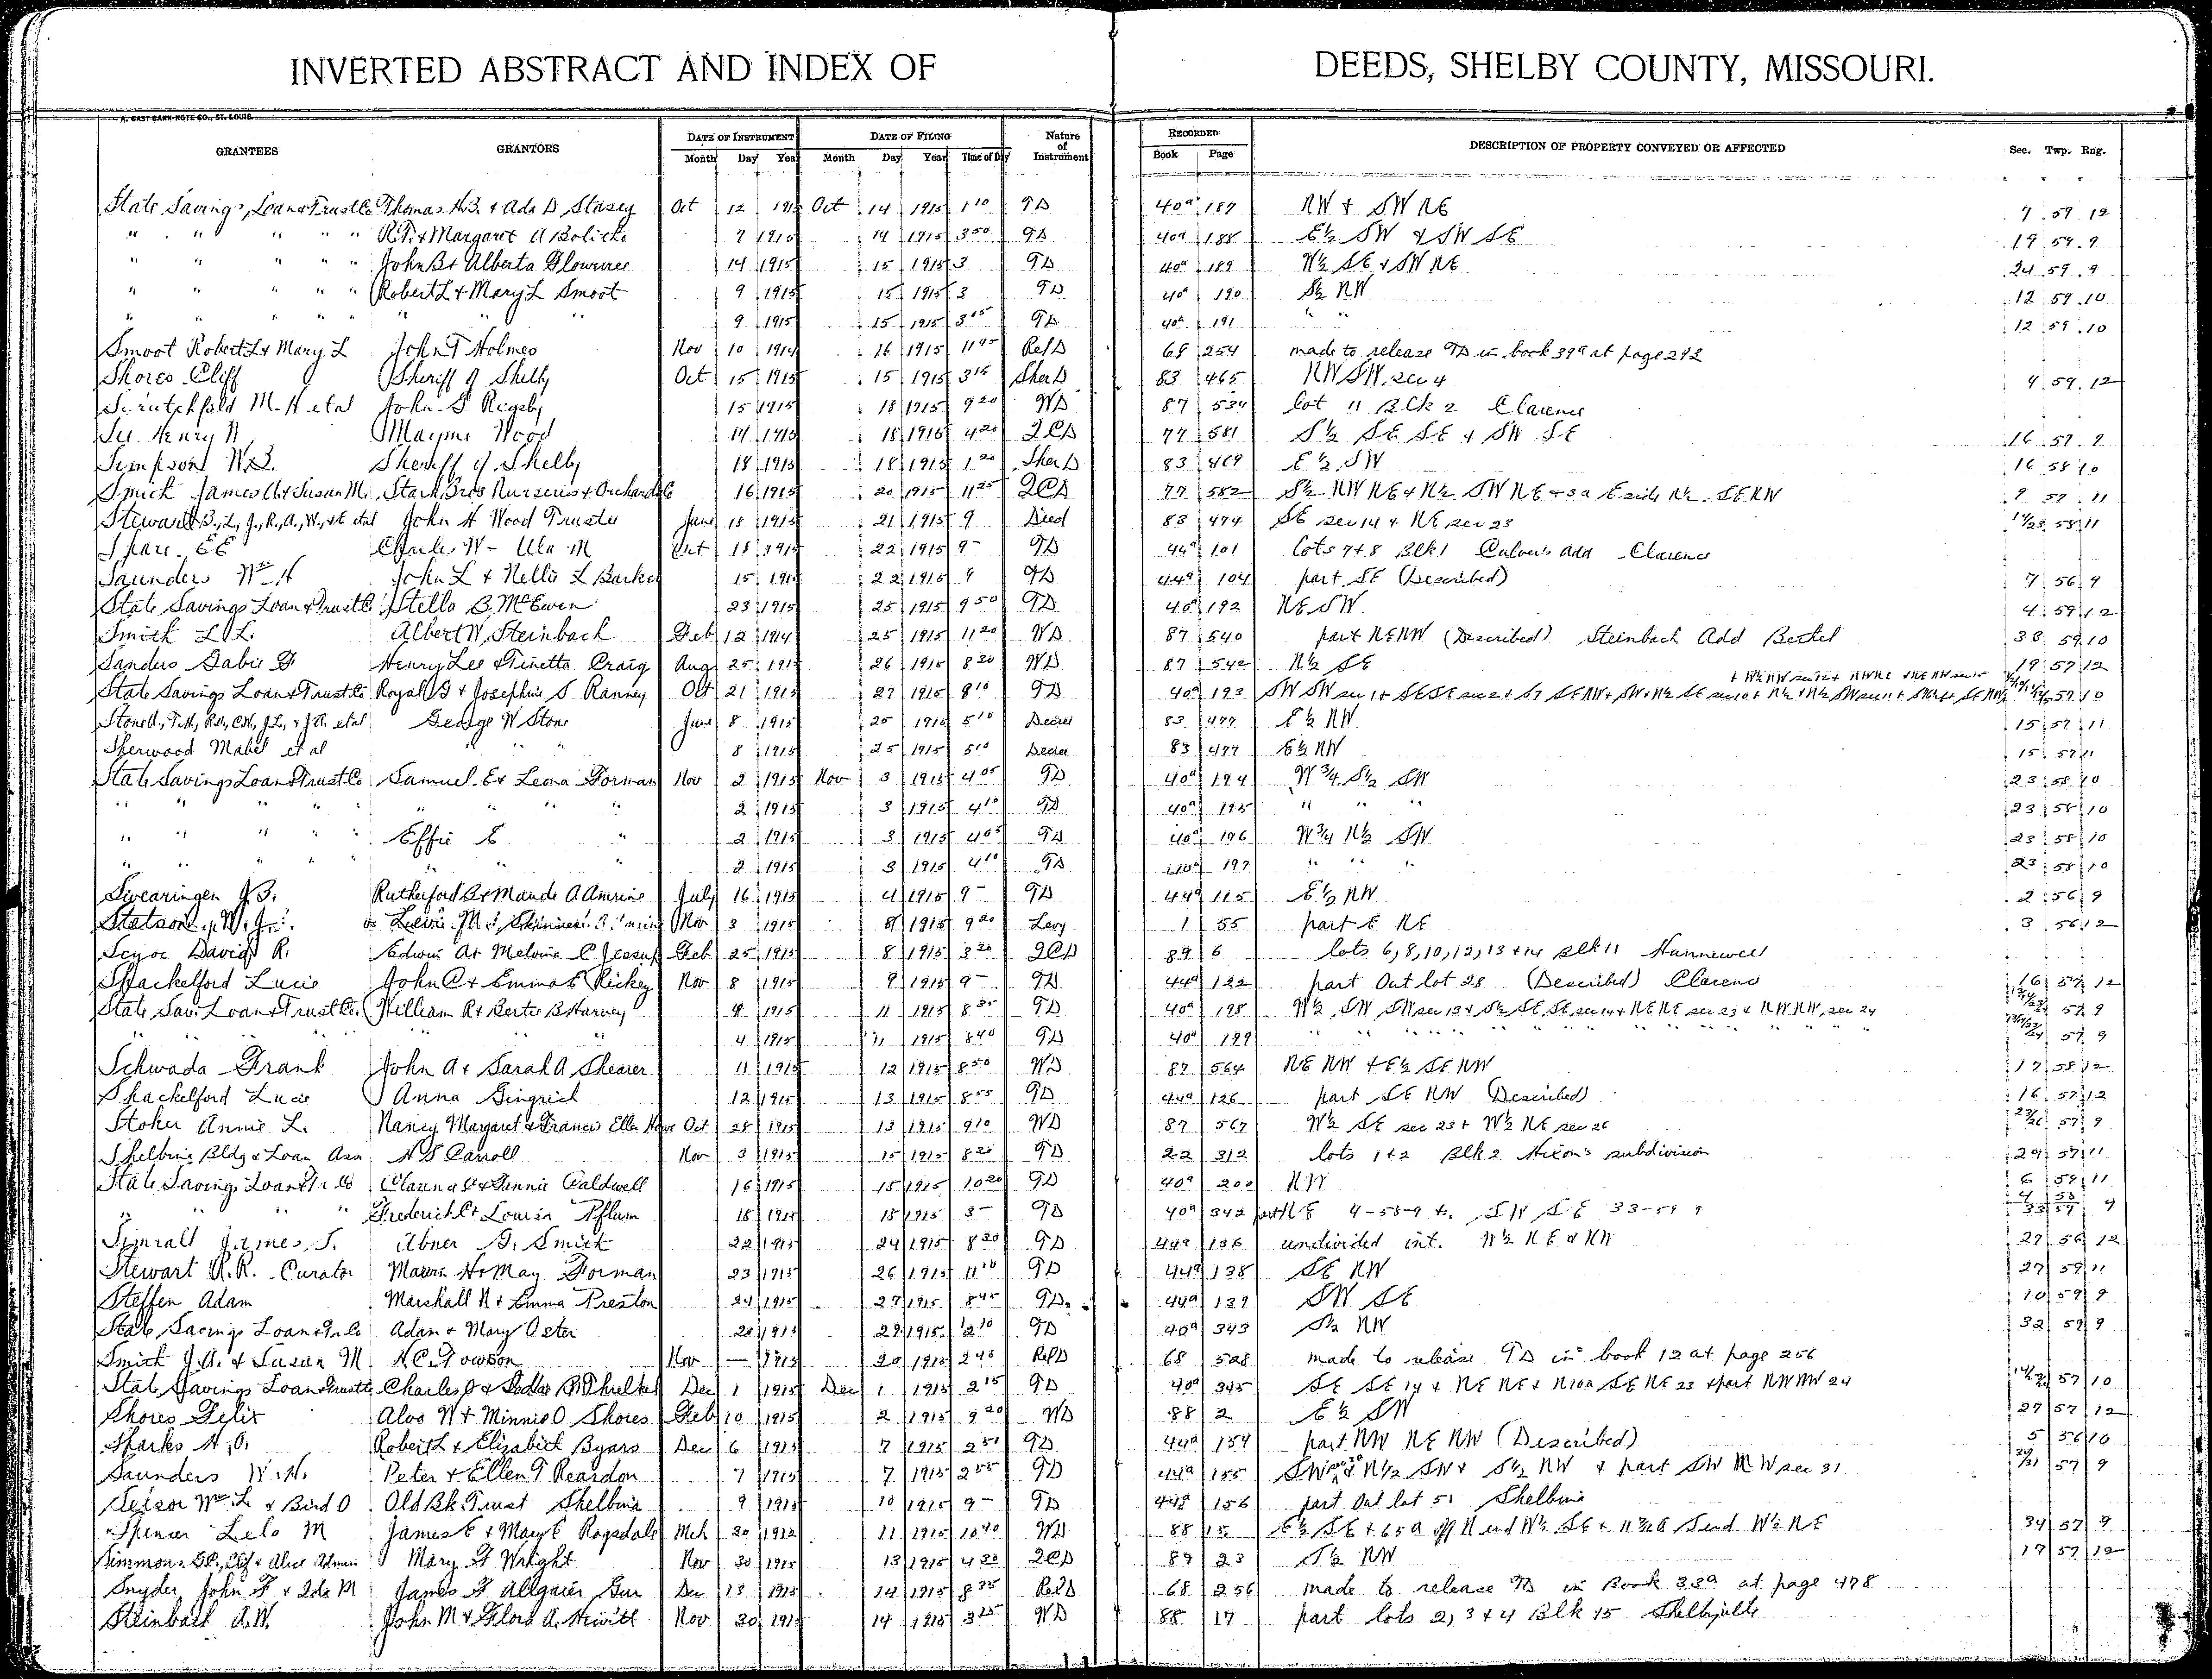 INVERTED ABSTRACT AND INDEX OF DEEDS, SHELBY COUNTY, MISSOURI.
A. GAST BANK-NOTE CO., ST. LOUIS.
GRANTEES GRANTORS DATE OF INSTRUMENT DATE OF FILING Nature of Instrument RECORDED DESCRIPTION OF PROPERTY CONVEYED OR AFFECTED Sec. Twp. Rng.
Month Day Year Month Day Year Time of Day Book Page
State Savings, Loan & Trust Co Thomas H.B. & Ada D Stasey Oct 12 1915 Oct 14 1915 1 10 TD 40a 187 NW & SW NE 7 59 12
" " " " " R.T. & Margaret A 7 1915 14 1915 3 50 TD 40a 188 E½ SW & SW SE 19 59 9
" " " " " John B & Alberta 14 1915 15 1915 3 TD 40a 189 W½ SE & SW NE 24 59 9
" " " " " Robert L & Mary L Smoot 9 1915 15 1915 3 TD 40a 190 S½ NW 12 59 10
" " " " " " " " 9 1915 15 1915 3 15 TD 40a 191 " " 12 59 10
Smoot Robert L & Mary L John T Holmes Nov 10 1914 16 1915 11 45 Rel D 68 254 made to release TD in book 39a at page 292
Shores Cliff Sheriff of Shelby Oct 15 1915 15 1915 3 15 Sher D 83 465 NW SW sec 4 4 59 12
Scrutchfield M. H et al John S Rigsby 15 1915 18 1915 9 20 WD 87 534 lot 11 Blck 2 Clarence
Henry Mayme Wood 14 1915 18 1915 4 20 QCD 77 581 S½ SE SE & SW SE 16 57 9
Simpson W.S. Sheriff of Shelby 18 1915 18 1915 1 20 Sher D 83 469 E½ SW 16 58 10
Smith James A & Susan M. Stark Bros Nurseries & Orchards Co 16 1915 20 1915 11 25 QCD 77 582 S½ NW NE & N½ SW NE & 3a E side N½ SE NW 9 57 11
Stewart B., L., J., R., A., W., & E et al John H Wood Trustee June 18 1915 21 1915 9 Deed 83 474 SE sec 14 & NE sec 23 14/23 58 11
Spare EE Charles W - Ula M Oct 18 1915 22 1915 9 - TD 44a 101 lots 7 & 8 Blk 1 Culver's add Clarence
Saunders Wm H John L & Nellie L Barker 15 191 22 1915 9 TD 44a 104 part SE (Described) 7 56 9
State Savings Loan & Trust Co Stella B. McEwen 23 1915 25 1915 9 50 TD 40a 192 NE SW 4 59 12
Smith L.L. Albert W Steinbach Feb 12 1914 25 1915 11 20 WD 87 540 part NE NW (Described) Steinbach Add Bethel 38 59 10
Sanders Gabie F Henry Lee & Tinetta Craig Aug 25 191 26 1915 8 30 WD 87 542 N½ SE 19 57 12
State Savings Loan & Trust Co Royal G & Josephine S. Ranney Oct 21 1915 27 1915 8 10 TD 40a 193 SW SW sec 1 & SE SE sec 2 57 10
Stone A., T.H., R.O., C.W., J.L., & J.A. et al George W Stone June 8 1915 25 1915 5 10 Decree 83 477 E½ NW 15 57 11
Sherwood Mabel et al " " " 8 1915 25 1915 5 10 Decree 83 477 E½ NW 15 57 11
State Savings Loan & Trust Co Samuel E & Leona Forman Nov 2 1915 Nov 3 1915 4 05 TD 40a 194 W¾ S½ SW 23 58 10
" " " " " " " " " 2 1915 3 1915 4 10 TD 40a 195 " " " 23 58 10
" " " " " Effie E " 2 1915 3 1915 4 05 TD 40a 196 W¾ N½ SW 23 58 10
" " " " " " " 2 1915 3 1915 4 10 TD 40a 197 " " " 23 58 10
Swearingen J.B. Rutherford B & Maude A Amrine July 16 1915 4 1915 9 - TD 44a 115 E½ NW 2 56 9
Stetson, W. J. Nov 3 1915 8 1915 9 20 Levy 1 55 part E NE 3 56 12
Scyoc David R. Edwin A & Melvina C Jessup Feb 25 1915 8 1915 3 20 QCD 89 6 lots 6, 8, 10, 12, 13 & 14 Blk 11 Hunnewell
Shackelford Lucie John C & Emma E Rickey Nov 8 1915 9 1915 9 - TD 44a 122 part Out lot 28 (Described) Clarence 16 57 12
State Sav. Loan & Trust Co. William R & Bertie B Harvey 4 1915 11 1915 8 35 TD 40a 198 W½ SW SW sec 13 & S½ SE SE sec 14 & NE NE sec 23 & NW NW sec 24 57 9
" " " " 4 1915 11 1915 8 40 TD 40a 199 " " " " " " " " 57 9
Schwada Frank John A & Sarah A Shearer 11 1915 12 1915 8 50 WD 87 564 NE NW & E½ SE NW 17 58 12
Shackelford Lucie Anna Gingrich 12 1915 13 1915 8 55 TD 44a 126 part SE NW (Described) 16 57 12
Stoker Annie L. Nancy Margaret & Francis Ellen Howe Oct 28 1915 13 1915 9 10 WD 87 567 W½ SE sec 23 & W½ NE sec 26 23/26 57 9
Shelbina Bldg & Loan Assn N S Carroll Nov 3 1915 15 1915 8 20 TD 22 312 lots 1 & 2 Blk 2 Nixon's subdivision 29 57 11
State Savings Loan & Tr Co Clarence C & Fannie Caldwell 16 1915 18 1915 10 20 TD 40a 200 NW 6 59 11
" " " " Frederick C & Louisa Pflum 18 1915 18 1915 3 - TD 40a 342 part NE 4-58-9 & SW SE 33-59 9 4/33 58/59 9
Simrall James T. Abner G. Smith 22 1915 24 1915 8 20 TD 44a 136 undivided int. W½ NE & NW 27 56 12
Stewart R.R. Curator H & May Forman 23 1915 26 1915 11 10 TD 44a 138 SE NW 27 59 11
Steffen Adam Marshall N & Emma Preston 24 1915 27 1915 8 45 TD 44a 139 SW SE 10 59 9
State Savings Loan & Tr Co Adam & Mary Oster 20 1915 29 1915 12 10 TD 40a 343 S½ NW 32 59 9
Smith J.A. & Susan M. N.C. Towson Nov — 1915 20 1915 2 40 Rel D 68 528 made to release TD in book 12 at page 256
State Savings Loan & Trust Co Charles O & Threlkel Dec 1 1915 Dec 1 1915 2 15 TD 40a 345 SE SE 14 & NE NE & N10a SE NE 23 & part NW NW 24 57 10
Shores Felix Alva N & Minnie O Shores Feb 10 1915 2 1915 9 20 WD 88 2 E½ SW 27 57 12
Sparks H.O. Robert L & Elizabeth Byars Dec 6 1915 7 1915 2 51 TD 44a 154 part NW NE NW (Described) 5 56 10
Saunders W.H. Peter & Ellen T Reardon 7 1915 7 1915 2 55 TD 44a 155 SW sec 30 & N½ SW & S½ NW & part SW NW sec 31 30/31 57 9
Wm L & Bird O Old Bk Trust Shelbina 9 1915 10 1915 9 - TD 44a 156 part Out lot 51 Shelbina
Spencer Lelo M James E & Mary E Ragsdale Mch 20 1912 11 1915 10 40 WD 88 15 E½ SE & 65a off N end W½ SE & S end W½ NE 34 57 9
Simmons G.P., Clif & Alice Admin Mary F Wright Nov 30 1915 13 1915 4 30 QCD 89 23 S½ NW 17 57 12
Snyder John F & Ida M James F Allgaier Gur Dec 13 1915 14 1915 8 35 Rel D 68 256 made to release TD in Book 33a at page 478
Steinbach A.W. John M & Flora A. Hewitt Nov 30 191 14 1915 3 25 WD 88 17 part lots 2, 3 & 4 Blk 15 Shelbyville